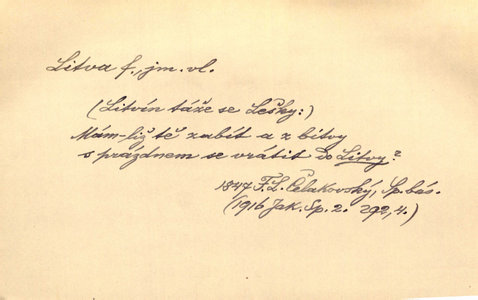 Litva f., jm. vl.
(Litvín táže se Lešky:)
Mám-liž tě zabít a z bitvy
s prázdnem se vrátit do Litvy?
1847 F. L. Čelakovský, Sp. bás.
(1916 Jak. Sp. 2. 292, 4.)